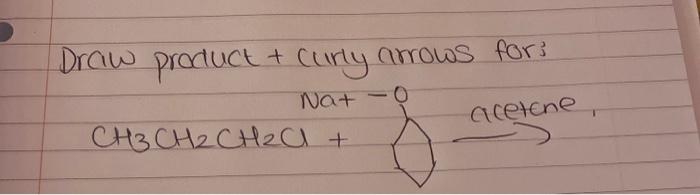 Draw product + curly arrows for:
Na+ -O
CH3CH2CH2Cl + acetene,